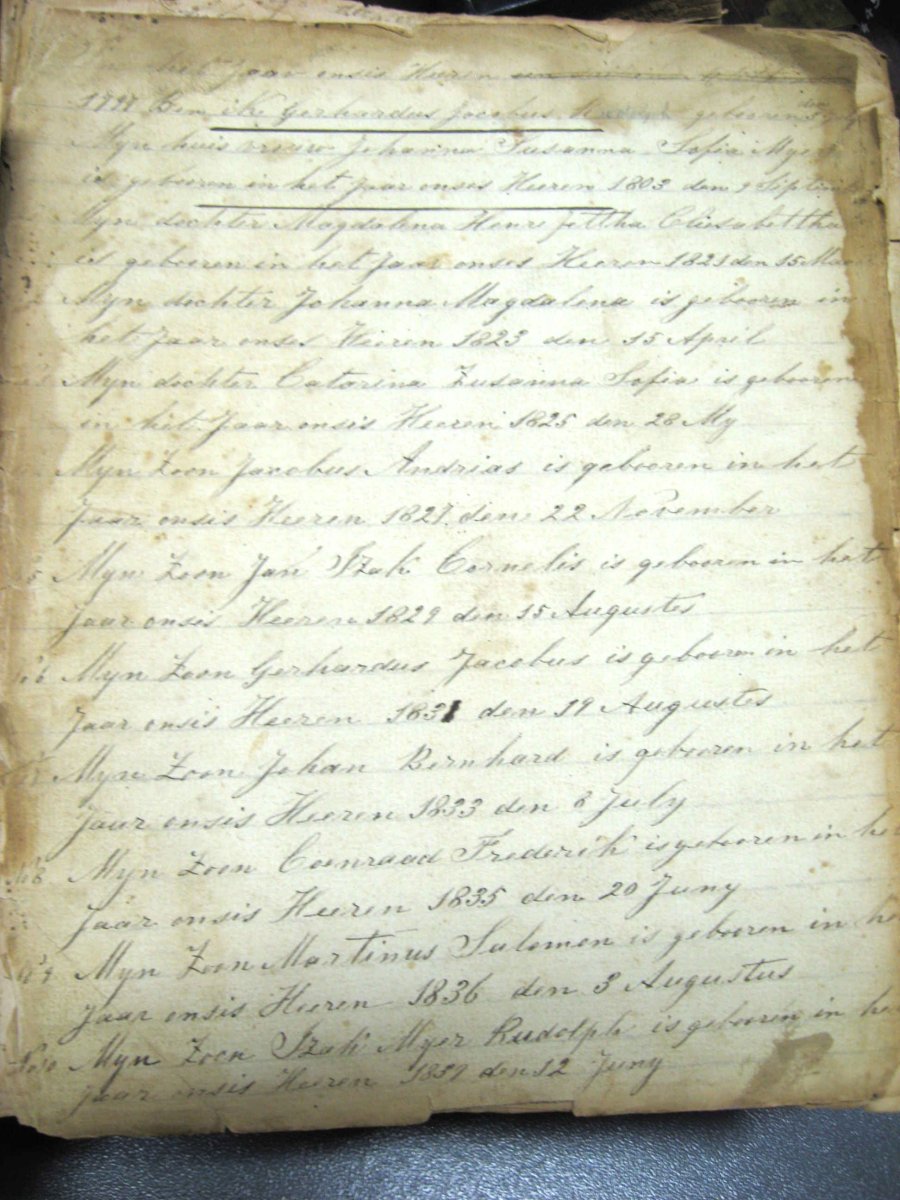 het Jaar onsis Heeren
1797 Ben ik Gerhardus Jacobus Rudolph gebooren den
Myn huis vrouw Johanna Susanna Sofia Myer
is gebooren in het Jaar onses Heeren 1803 den 9 Septem
Myn dochter Magdalena Henre Jettha Eliesabettha
is gebooren in het Jaar onses Heeren 1821 den 15
Myn dochter Johanna Magdalena is gebooren in
het Jaar onses Heeren 1823 den 15 April
No 3 Myn dochter Catarina Zusanna Sofia is gebooren
in het Jaar onsis Heeren 1825 den 28 My
Myn Zoon Jacobus Andrias is gebooren in het
Jaar onsis Heeren 1827 den 22 November
5 Myn Zoon Jan Izak Cornelis is gebooren in het
Jaar onsis Heeren 1829 den 15 Augustes
No 6 Myn Zoon Gerhardus Jacobus is gebooren in het
Jaar onsis Heeren 1831 den 19 Augustes
Myn Zoon Johan Bernhard is gebooren in het
Jaar onsis Heeren 1833 den 8 July
No 8 Myn Zoon Coenraad Frederik is gebooren in he
Jaar onsis Heeren 1835 den 20 Juny
No 9 Myn Zoon Martinus Salomon is gebooren in he
Jaar onsis Heeren 1836 den 3 Augustus
No 10 Myn Zoon Izak Myer Rudolph is gebooren in he
Jaar onsis Heeren den 12 Juny